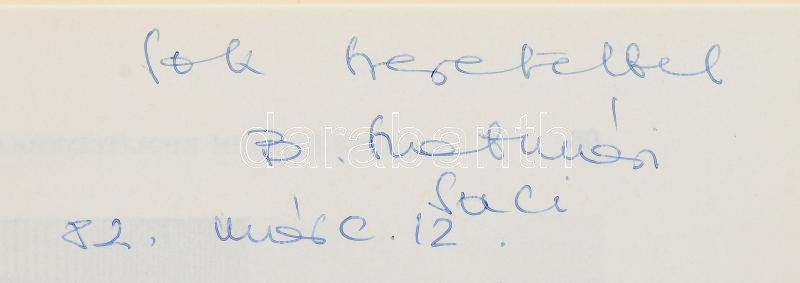 Sok szeretettel
B. Szatmári
Saci
82. márc. 12.
darabanth